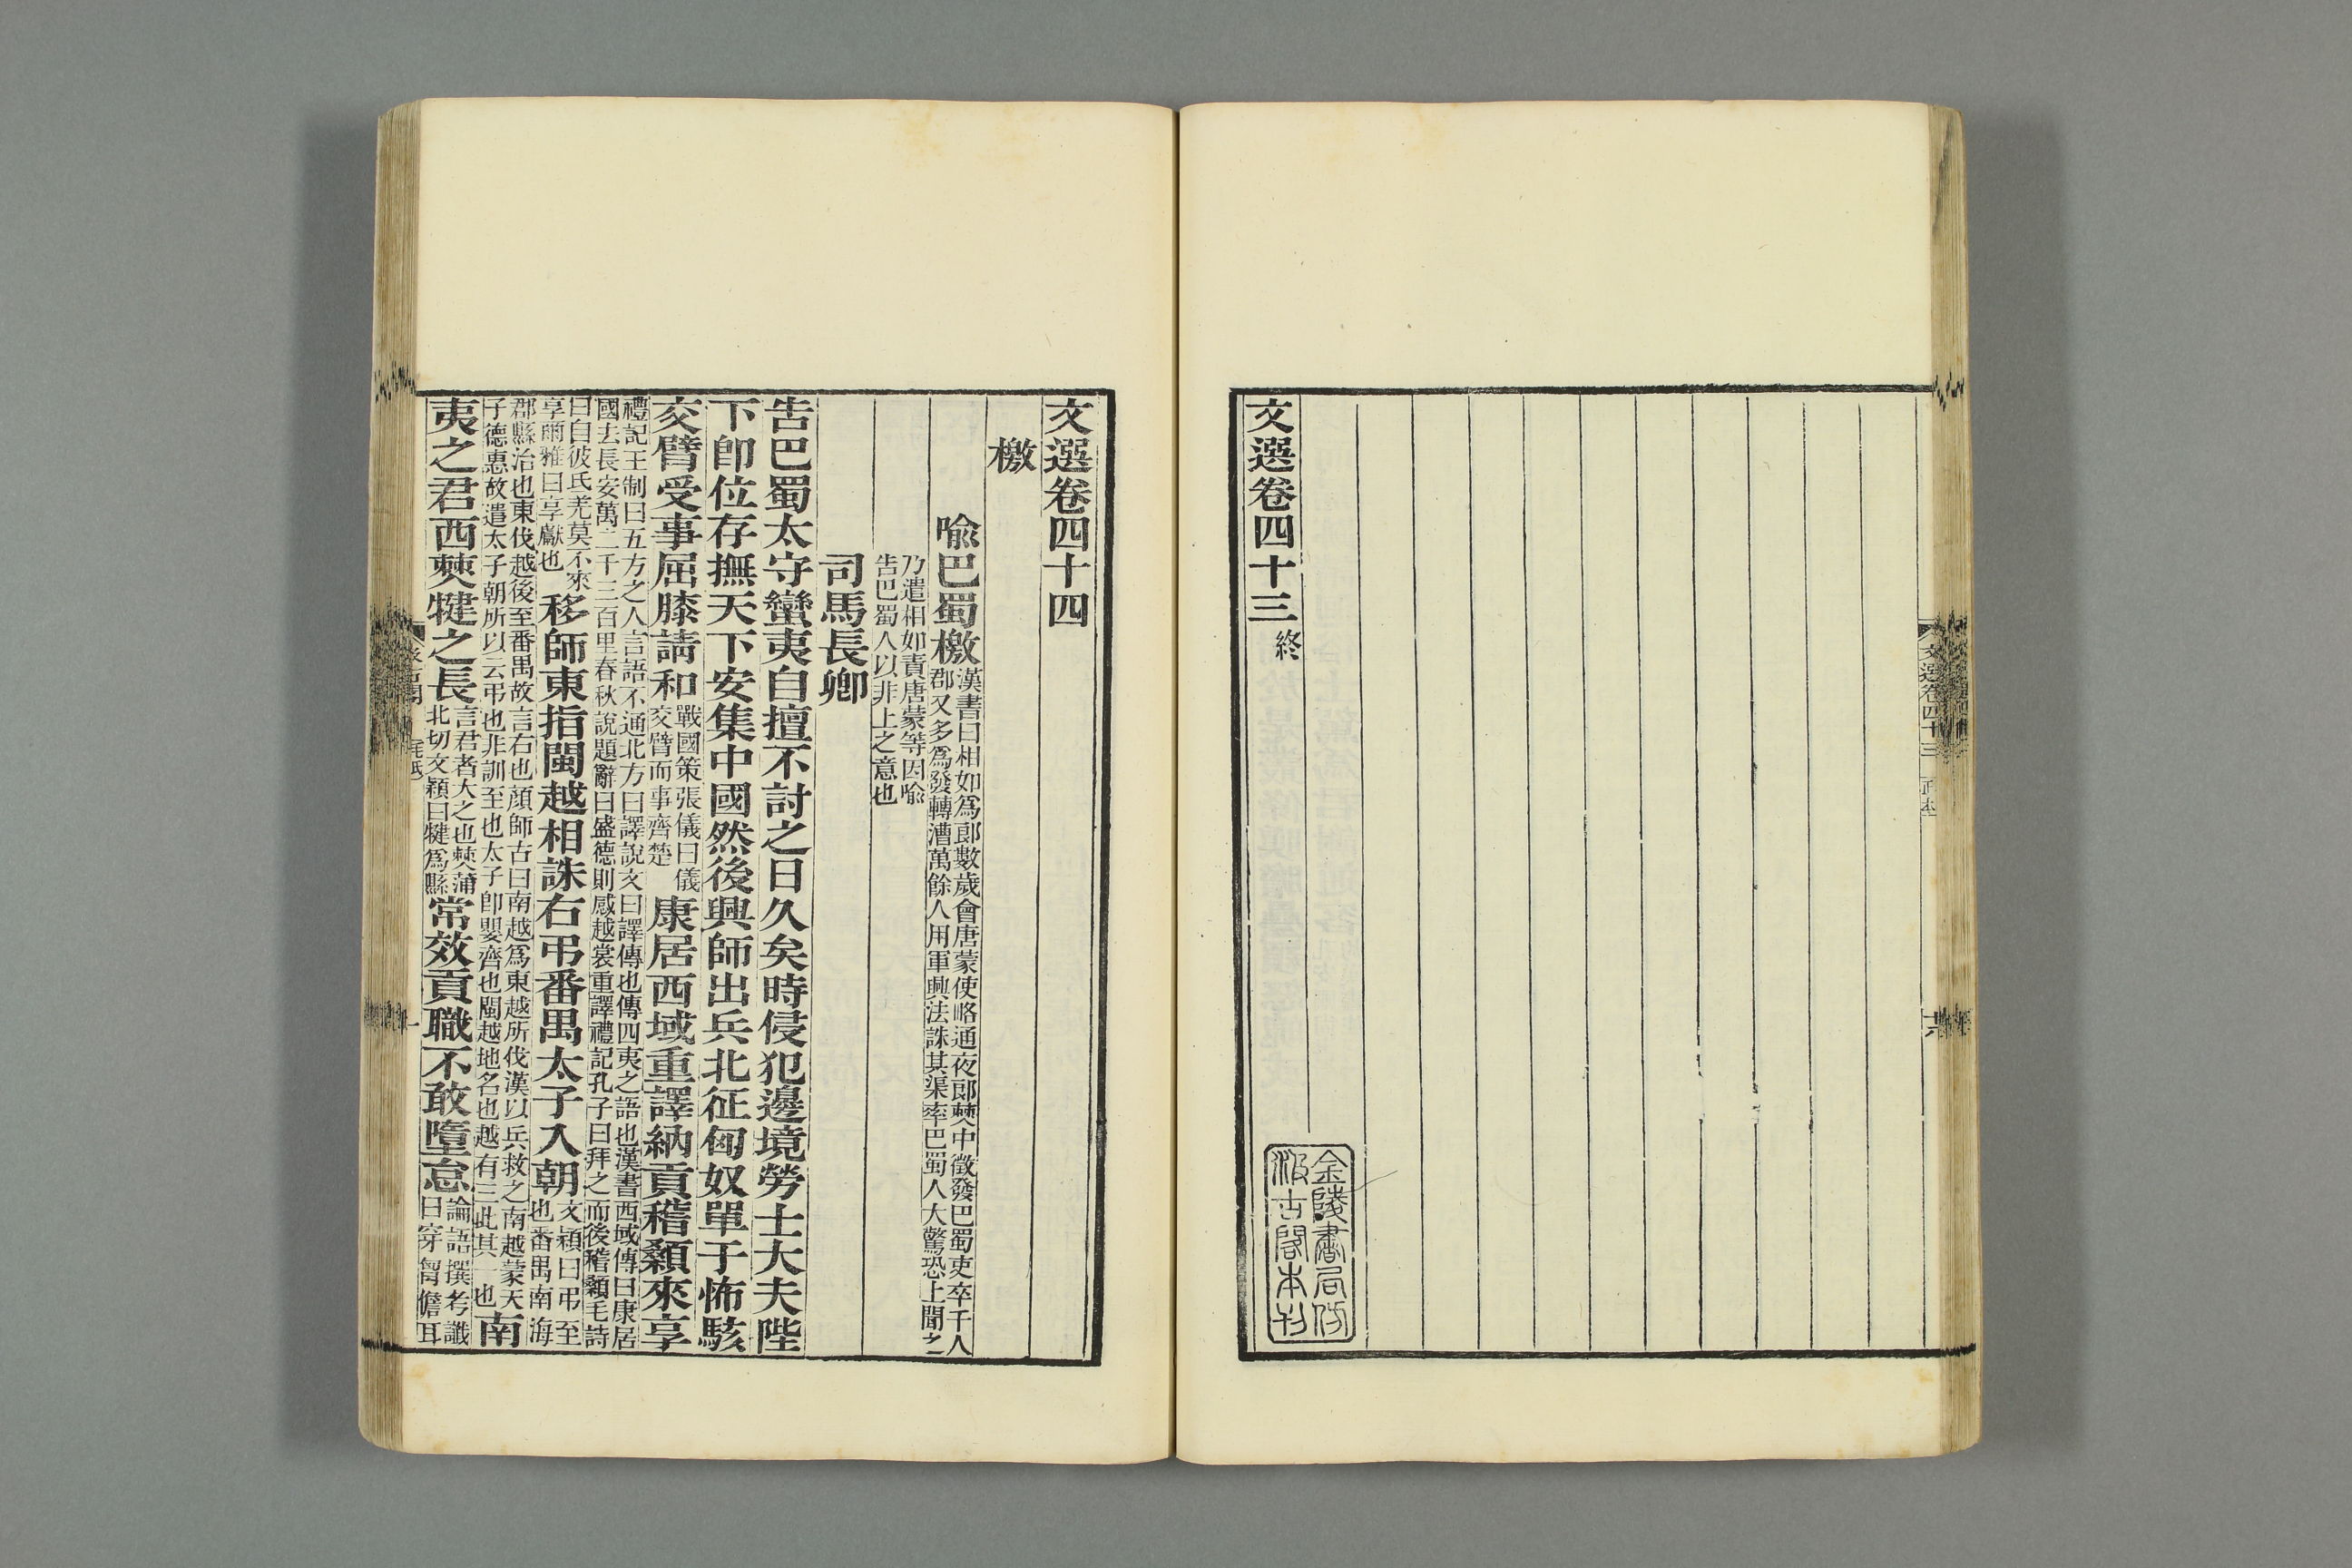 文選卷四十三
文選卷四十三終
金陵書局仿
汲古閣本刊
文選卷四十四
檄
喩巴蜀檄漢書曰相如爲郎數歲會唐蒙使略通夜郎僰中徵發巴蜀吏卒千人
郡又多爲發轉漕萬餘人用軍興法誅其渠率巴蜀人大驚恐上聞之
乃遣相如責唐蒙等因喩
告巴蜀人以非上之意也
司馬長卿
告巴蜀太守蠻夷自擅不討之日久矣時侵犯邊境勞士大夫陛
下卽位存撫天下安集中國然後興師出兵北征匈奴單于怖駭
交臂受事屈膝請和戰國策張儀曰儀
交臂而事齊楚康居西域重譯納貢稽顙來享
禮記王制曰五方之人言語不通北方曰譯說文曰譯傳也傳四夷之語也漢書西域傳曰康居
國去長安萬二千三百里春秋說題辭曰盛德則感越裳重譯禮記孔子曰拜之而後稽顙毛詩
曰自彼氐羌莫不來
享爾雅曰享獻也移師東指閩越相誅右弔番禺太子入朝文穎曰弔至
也番禺南海
郡縣治也東伐越後至番禺故言右也顏師古曰南越爲東越所伐漢以兵救之南越蒙天
子德惠故遣太子朝所以云弔也非訓至也太子卽嬰齊也閩越地名也越有三此其一也南
夷之君西僰犍之長言君者大之也僰蒲
北切文穎曰犍爲縣常效貢職不敢墮怠論語撰考讖
曰穿胷儋耳